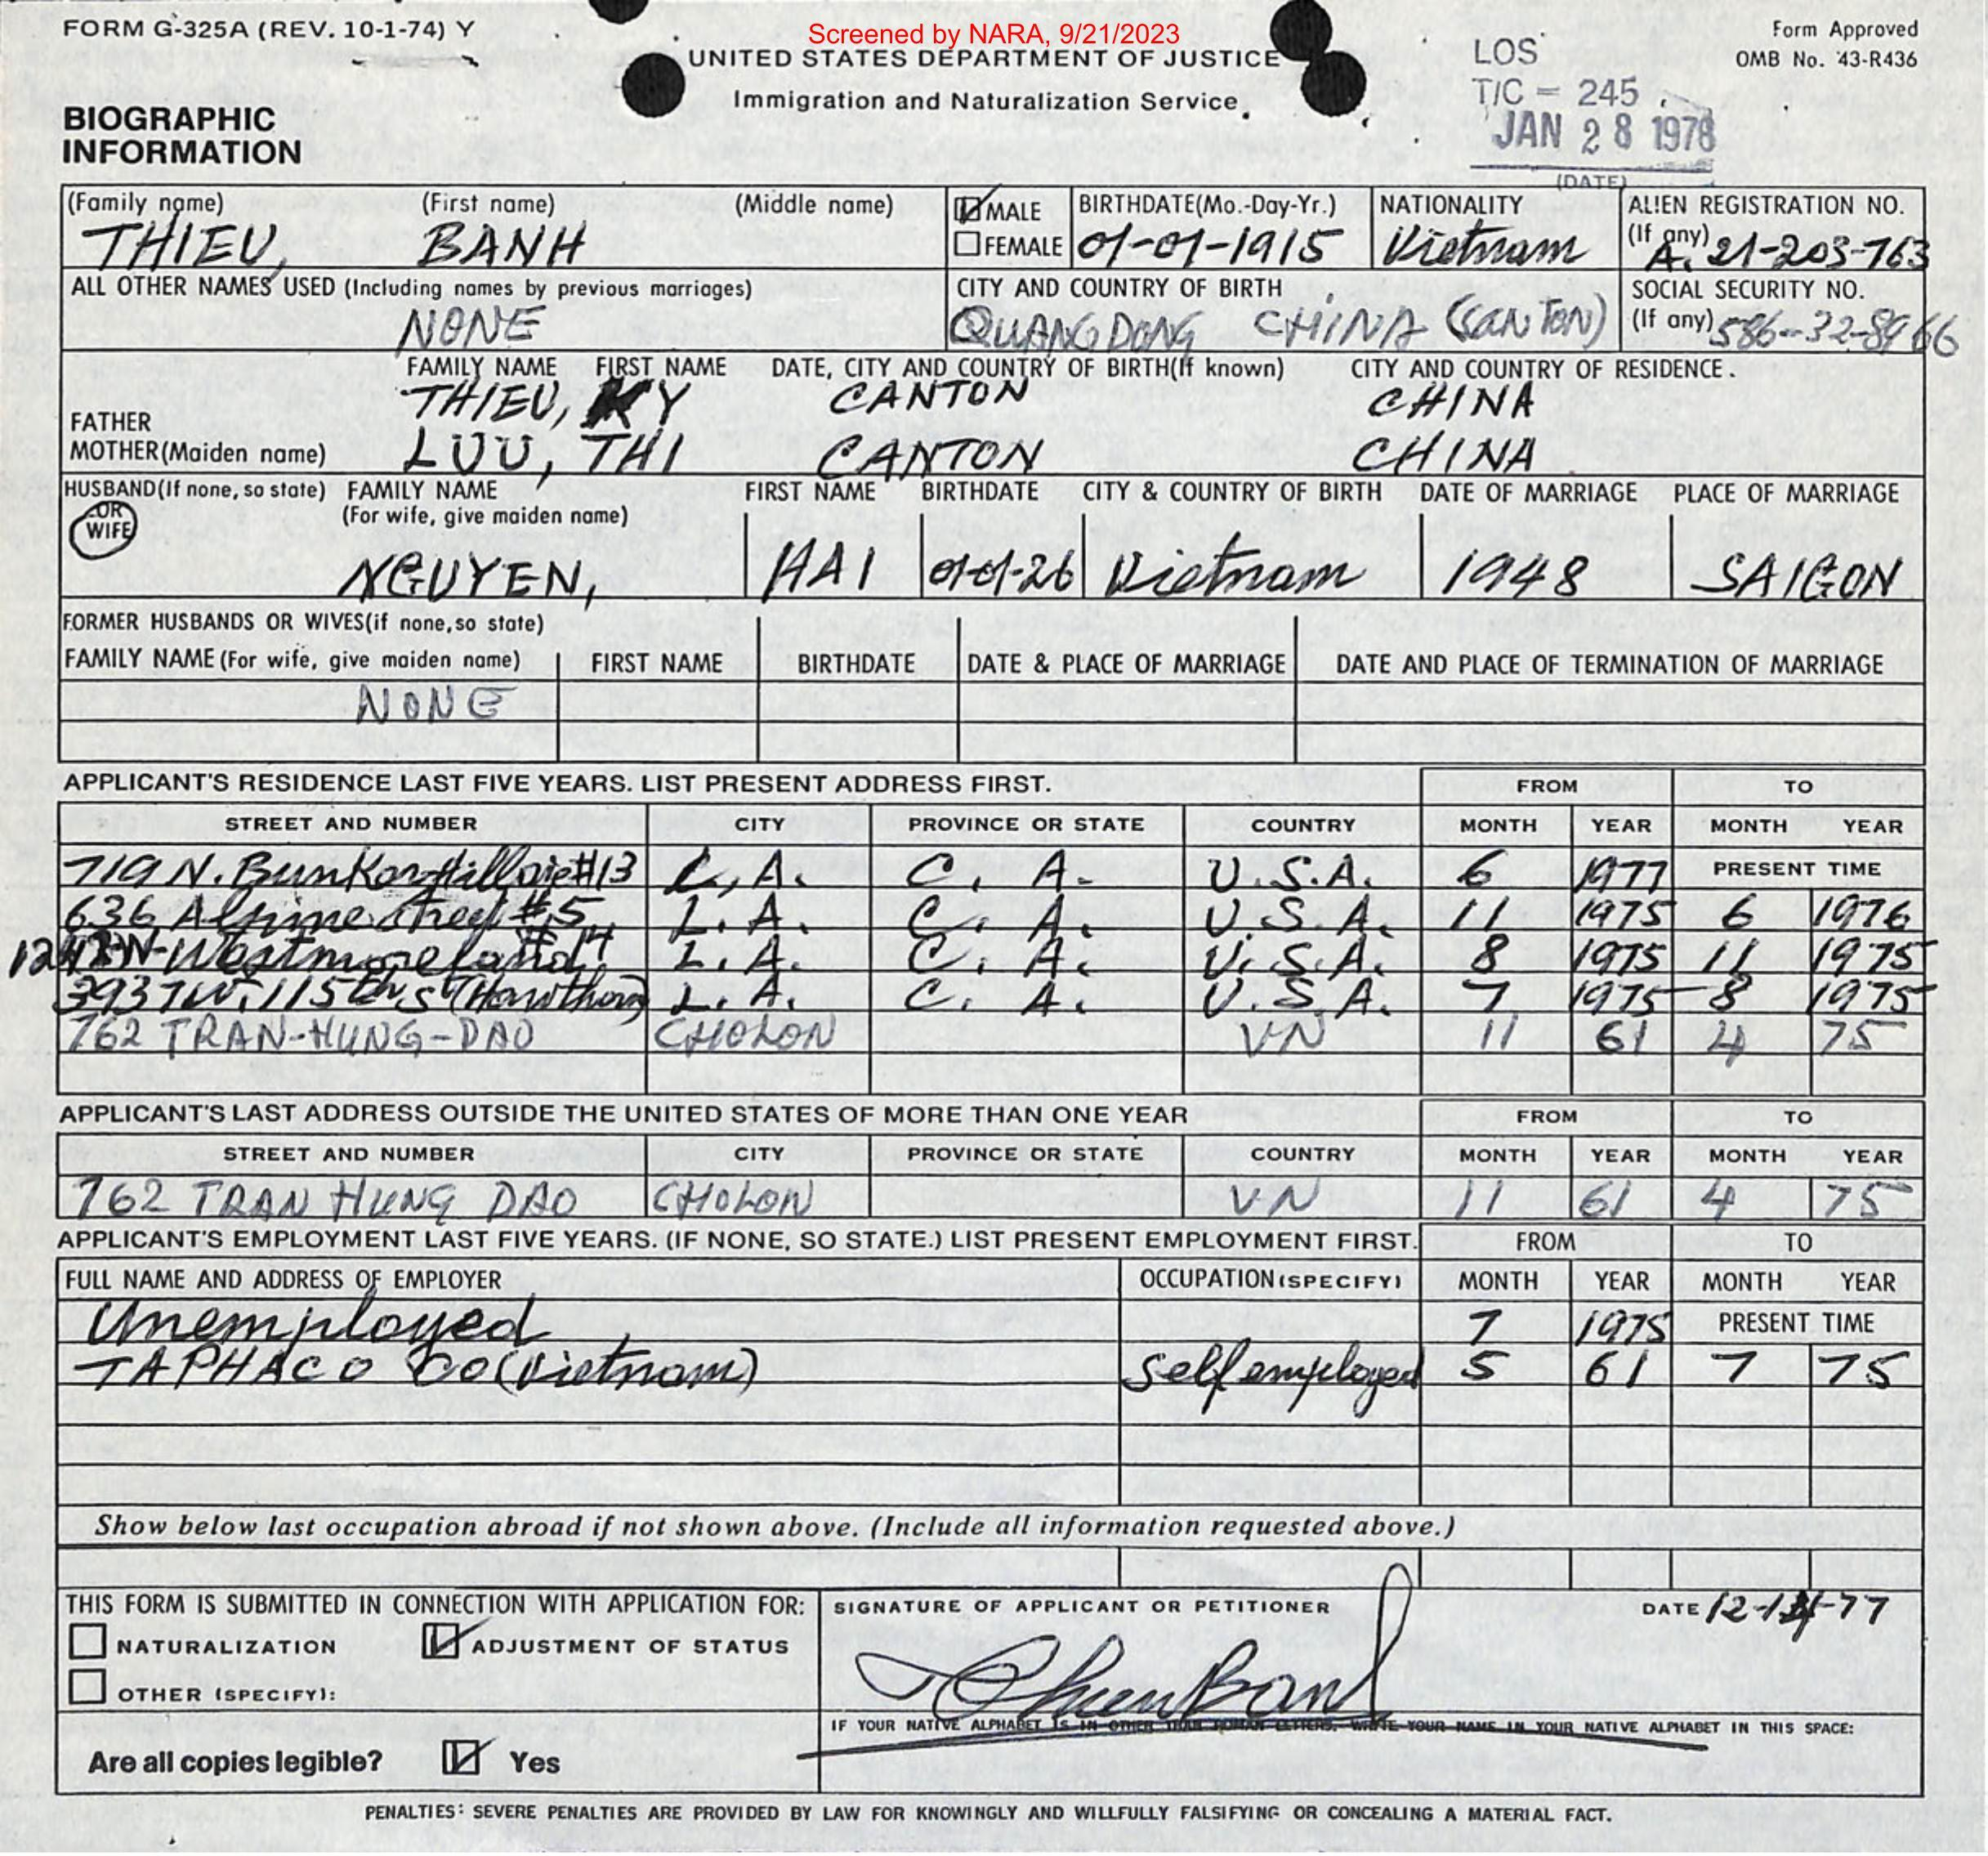 FORM G-325A (REV. 10-1-74) Y
Screened by NARA, 9/21/2023
UNITED STATES DEPARTMENT OF JUSTICE
Immigration and Naturalization Service
Form Approved
OMB No. 43-R436
LOS
T/C = 245
JAN 28 1978
(DATE)
BIOGRAPHIC
INFORMATION
(Family name) (First name) (Middle name) MALE BIRTHDATE(Mo.-Day-Yr.) NATIONALITY ALIEN REGISTRATION NO.
THIEU, BANH FEMALE 01-01-1915 Vietnam (If any) A. 21-203-763
ALL OTHER NAMES USED (Including names by previous marriages) CITY AND COUNTRY OF BIRTH SOCIAL SECURITY NO.
NONE QUANG DONG CHINA (CANTON) (If any) 586-32-8966
FAMILY NAME FIRST NAME DATE, CITY AND COUNTRY OF BIRTH(If known) CITY AND COUNTRY OF RESIDENCE.
FATHER THIEU, KY CANTON CHINA
MOTHER(Maiden name) LUU, THI CANTON CHINA
HUSBAND(If none, so state) FAMILY NAME FIRST NAME BIRTHDATE CITY & COUNTRY OF BIRTH DATE OF MARRIAGE PLACE OF MARRIAGE
OR (For wife, give maiden name)
WIFE
NGUYEN, HAI 01-01-26 Vietnam 1948 SAIGON
FORMER HUSBANDS OR WIVES(if none, so state)
FAMILY NAME (For wife, give maiden name) FIRST NAME BIRTHDATE DATE & PLACE OF MARRIAGE DATE AND PLACE OF TERMINATION OF MARRIAGE
NONE
APPLICANT'S RESIDENCE LAST FIVE YEARS. LIST PRESENT ADDRESS FIRST. FROM TO
STREET AND NUMBER CITY PROVINCE OR STATE COUNTRY MONTH YEAR MONTH YEAR
719 N. Bunker Hill #13 L, A. C. A. U.S.A. 6 1977 PRESENT TIME
636 Alpine Street #5 L. A. C. A. U.S.A. 11 1975 6 1976
N. Westmoreland L. A. C. A. U.S.A. 8 1975 11 1975
3937 W. 115th St (Hawthorn) L. A. C. A. U.S.A. 7 1975 8 1975
762 TRAN-HUNG-DAO CHOLON VN 11 61 4 75
APPLICANT'S LAST ADDRESS OUTSIDE THE UNITED STATES OF MORE THAN ONE YEAR FROM TO
STREET AND NUMBER CITY PROVINCE OR STATE COUNTRY MONTH YEAR MONTH YEAR
762 TRAN HUNG DAO CHOLON VN 11 61 4 75
APPLICANT'S EMPLOYMENT LAST FIVE YEARS. (IF NONE, SO STATE.) LIST PRESENT EMPLOYMENT FIRST. FROM TO
FULL NAME AND ADDRESS OF EMPLOYER OCCUPATION (SPECIFY) MONTH YEAR MONTH YEAR
Unemployed 7 1975 PRESENT TIME
TAPHACO CO (Vietnam) Self employed 5 61 7 75
Show below last occupation abroad if not shown above. (Include all information requested above.)
THIS FORM IS SUBMITTED IN CONNECTION WITH APPLICATION FOR: SIGNATURE OF APPLICANT OR PETITIONER DATE 12-14-77
NATURALIZATION ADJUSTMENT OF STATUS
OTHER (SPECIFY):
IF YOUR NATIVE ALPHABET IS IN OTHER THAN ROMAN LETTERS, WRITE YOUR NAME IN YOUR NATIVE ALPHABET IN THIS SPACE:
Are all copies legible? Yes
PENALTIES: SEVERE PENALTIES ARE PROVIDED BY LAW FOR KNOWINGLY AND WILLFULLY FALSIFYING OR CONCEALING A MATERIAL FACT.